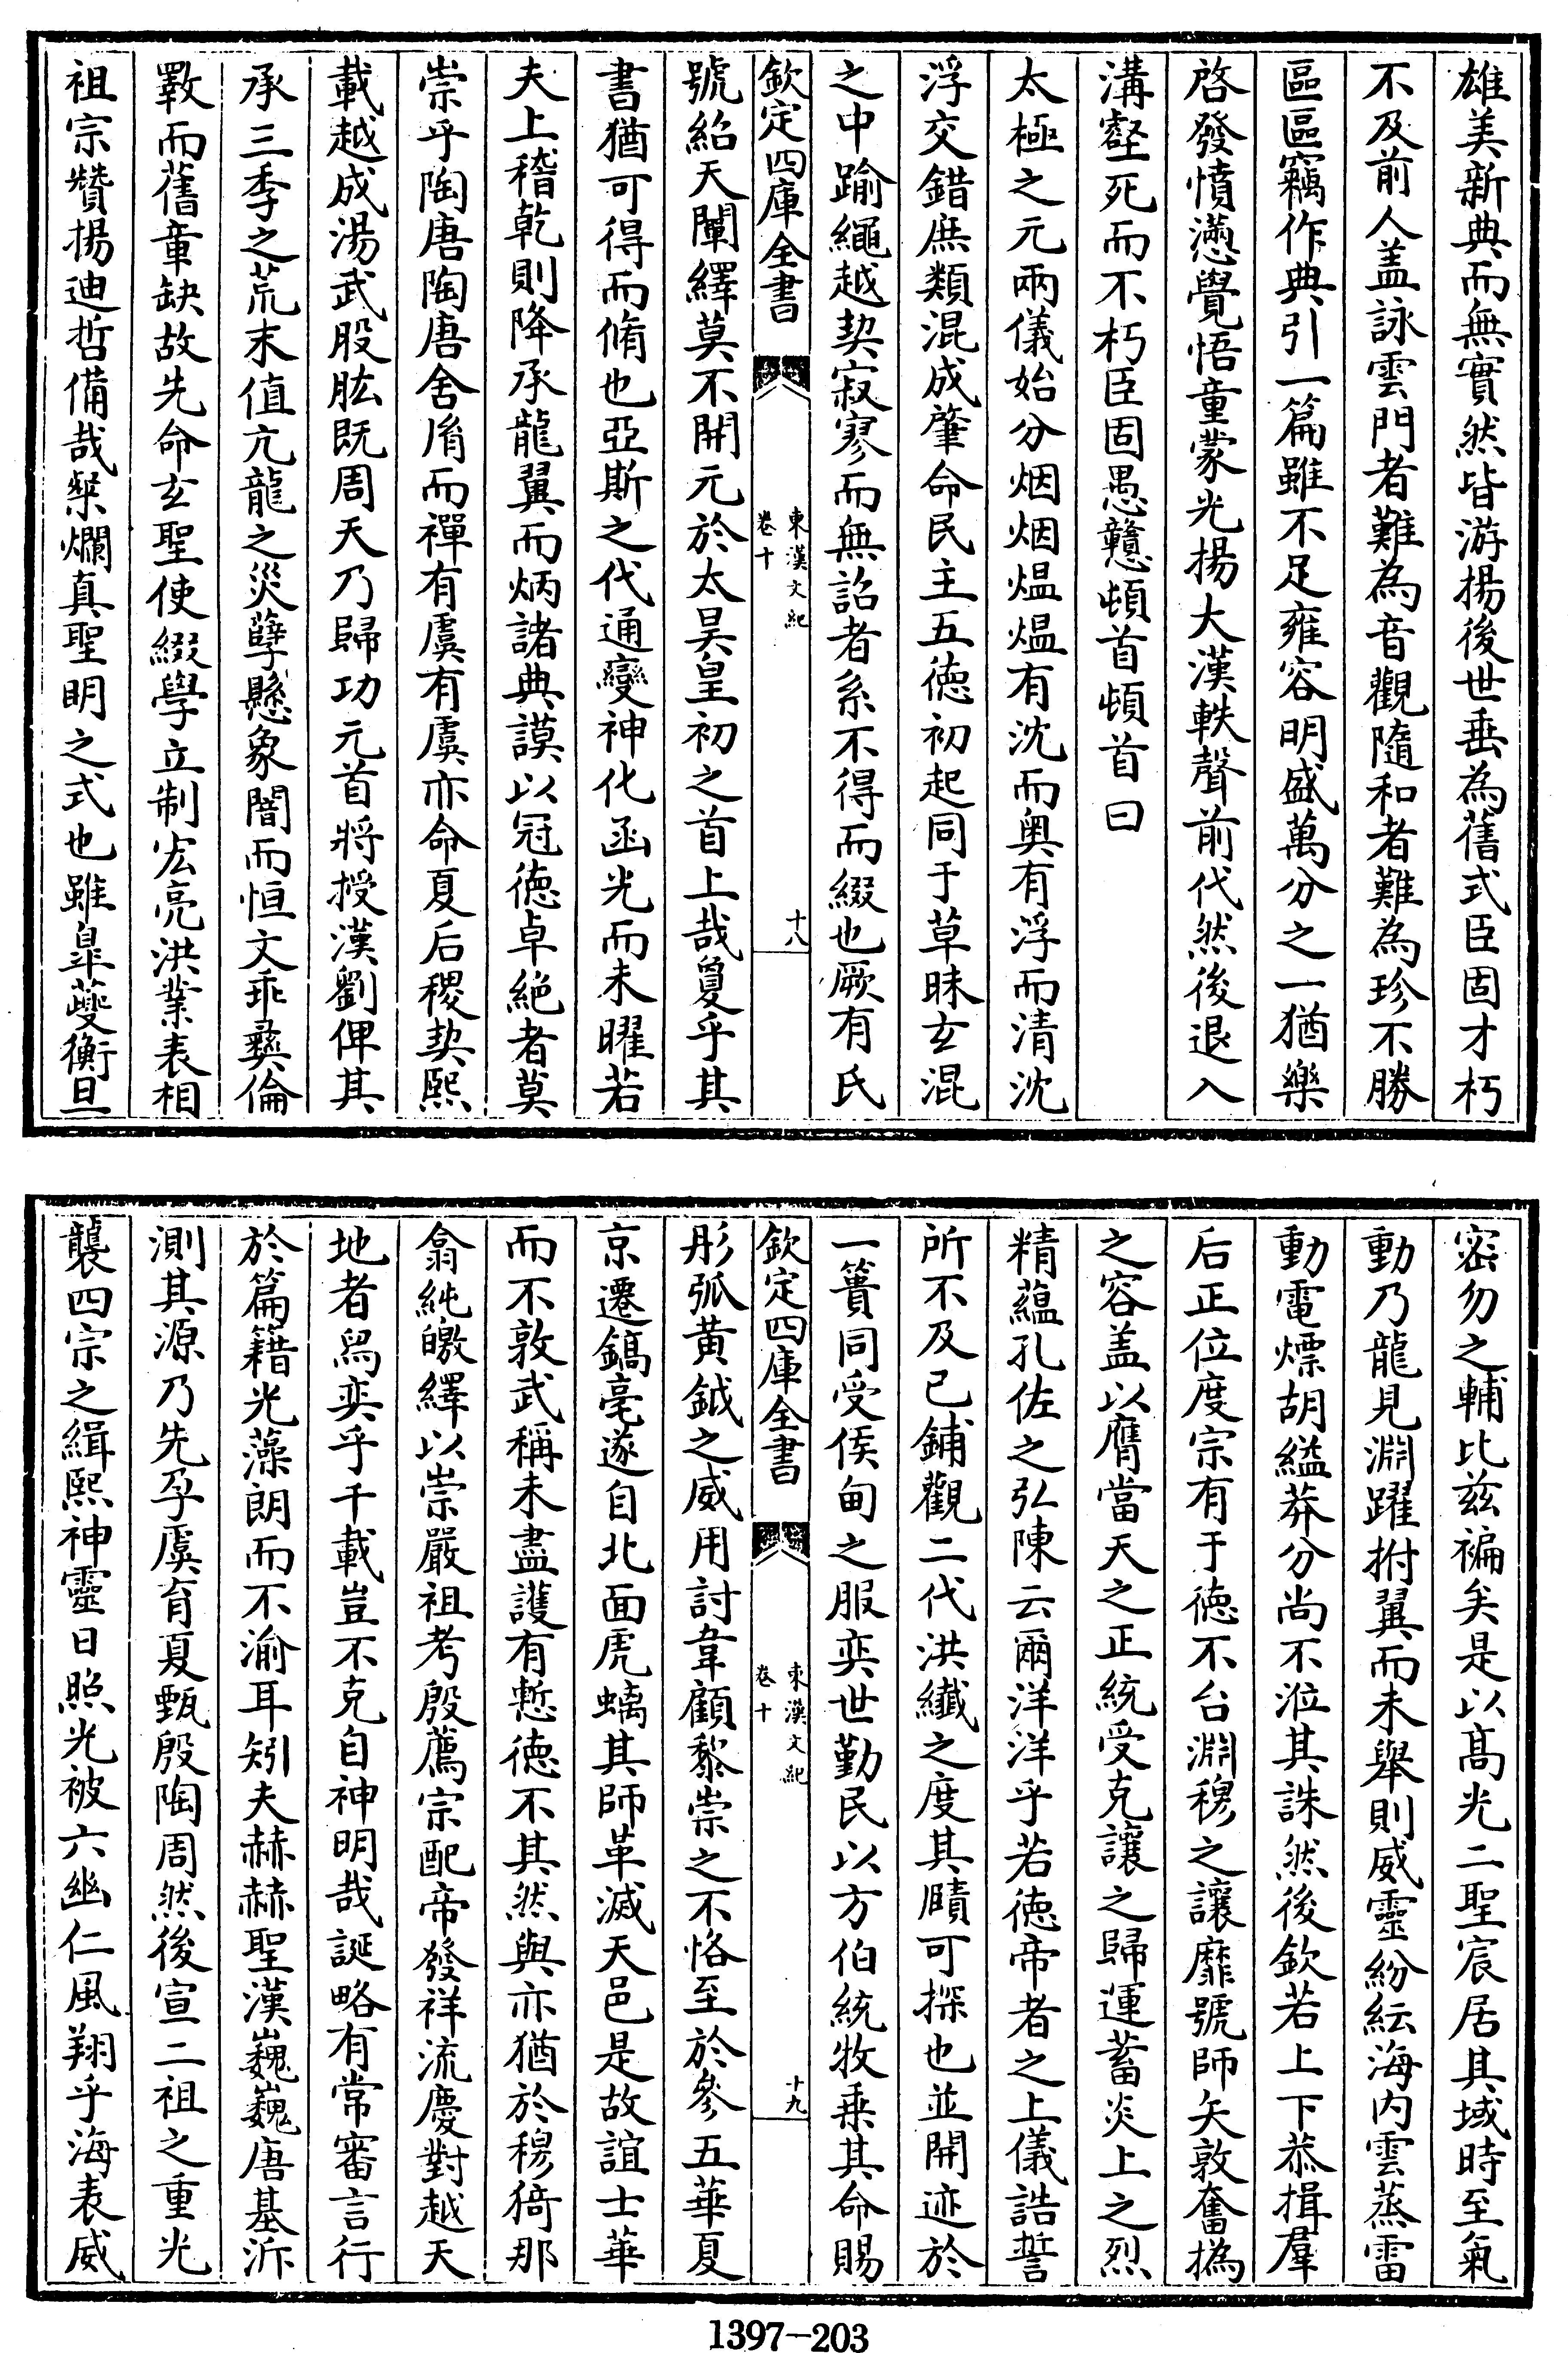 雄美新典而無實然皆游揚後世垂為舊式臣固才朽
不及前人盖詠雲門者難為音觀隨和者難為珍不勝
區區竊作典引一篇雖不足雍容明盛萬分之一猶樂
啓發憤懣覺悟童蒙光揚大漢軼聲前代然後退入
溝壑死而不朽臣固愚戇頓首頓首曰
太極之元兩儀始分烟烟熅熅有沈而奥有浮而清沈
浮交錯庶類混成肇命民主五德初起同于草昧玄混
之中踰繩越契寂寥而無詔者系不得而綴也厥有氏
欽定四庫全書
東漢文紀
卷十
十八
號紹天闡繹莫不開元於太昊皇初之首上哉敻乎其
書猶可得而脩也亞斯之代通變神化函光而未曜若
夫上稽乾則降承龍翼而炳諸典謨以冠德卓絕者莫
崇乎陶唐陶唐舍胤而禪有虞有虞亦命夏后稷契熙
載越成湯武股肱既周天乃歸功元首將授漢劉俾其
承三季之荒末值亢龍之災孽懸象闇而恒文乖彝倫
斁而舊章缺故先命玄聖使綴學立制宏亮洪業表相
祖宗贊揚迪哲備哉粲爛真聖明之式也雖臯夔衡旦
密勿之輔比兹褊矣是以髙光二聖宸居其域時至氣
動乃龍見淵躍拊翼而未舉則威靈紛紜海内雲蒸雷
動電熛胡縊莽分尚不涖其誅然後欽若上下恭揖羣
后正位度宗有于德不台淵穆之讓靡號師矢敦奮撝
之容盖以膺當天之正統受克讓之歸運蓄炎上之烈
精藴孔佐之弘陳云爾洋洋乎若德帝者之上儀誥誓
所不及已鋪觀二代洪纖之度其賾可探也並開迹於
一簣同受侯甸之服奕世勤民以方伯統牧乗其命賜
欽定四庫全書
東漢文紀
卷十
十九
彤弧黄鉞之威用討韋顧黎崇之不恪至於參五華夏
京遷鎬亳遂自北面虎螭其師革滅天邑是故誼士華
而不敦武稱未盡護有慙德不其然與亦猶於穆猗那
翕純皦繹以崇嚴祖考殷薦宗配帝發祥流慶對越天
地者舄奕乎千載豈不克自神明哉誕略有常審言行
於篇籍光藻朗而不渝耳矧夫赫赫聖漢巍巍唐基泝
測其源乃先孕虞育夏甄殷陶周然後宣二祖之重光
襲四宗之緝熙神靈日照光被六幽仁風翔乎海表威
1397-203